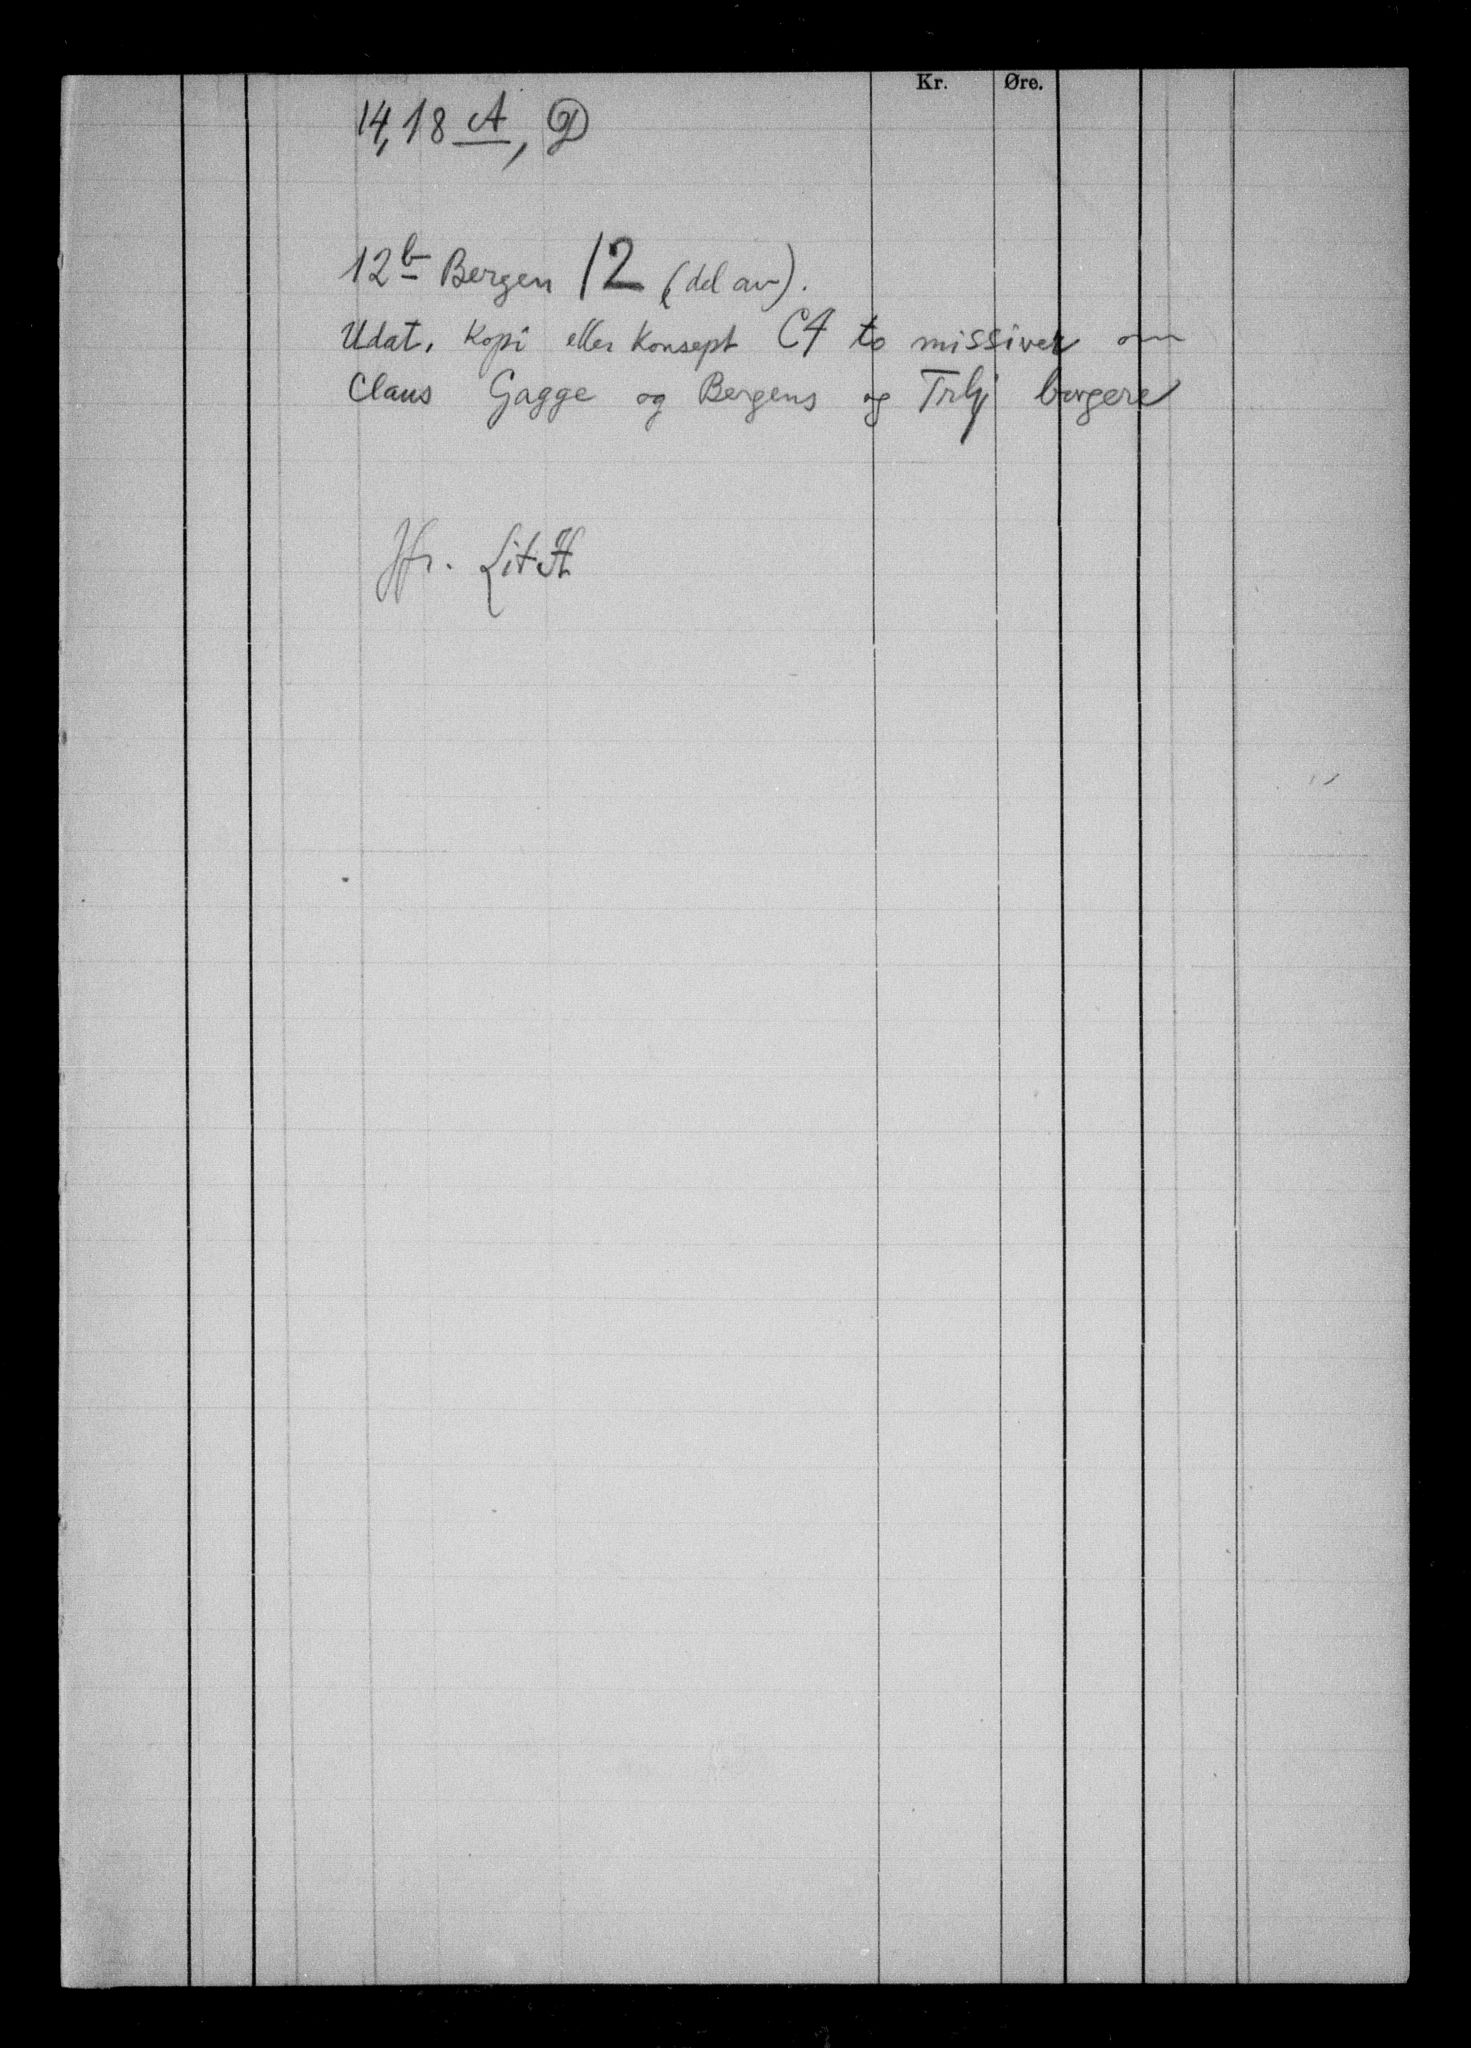 Kr. Øre.
14, 18 A, D
12b Bergen 12 (del av).
Udat. Kopi eller konsept C4 to missiver om
Claus Gagge og Bergens og Trhj borgere
Jfr. Lit H